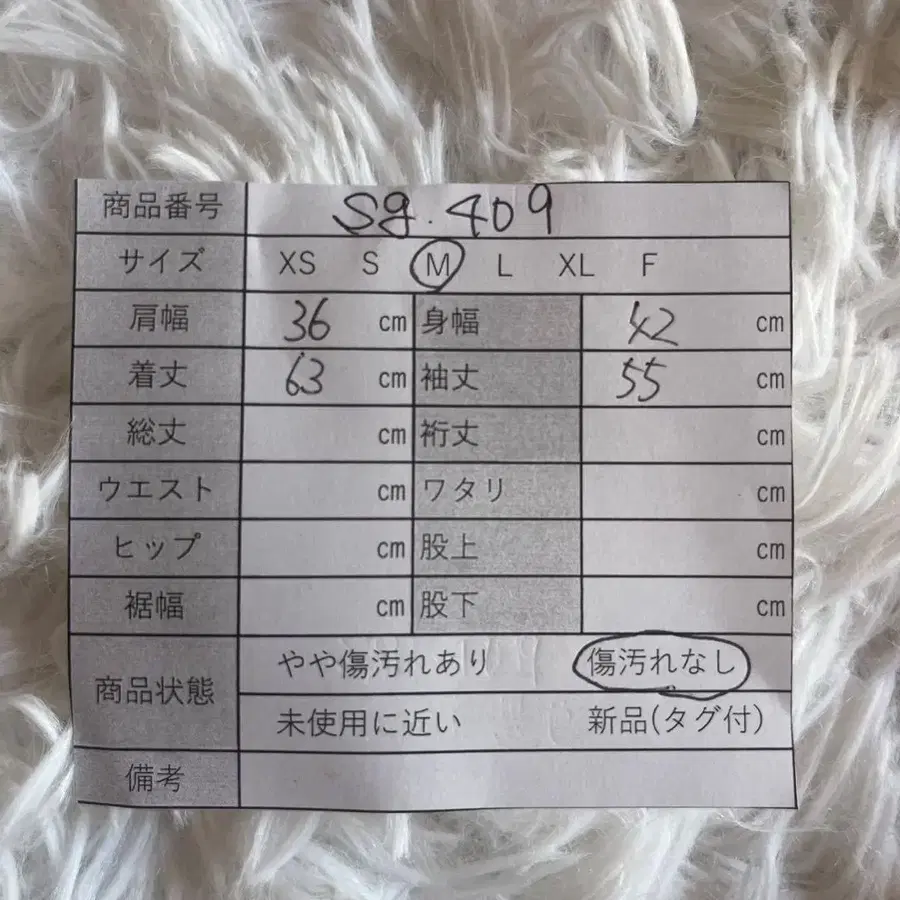 商品番号 sg.409
サイズ XS S M L XL F
肩幅 36 cm 身幅 42 cm
着丈 63 cm 袖丈 55 cm
総丈 cm 裄丈 cm
ウエスト cm ワタリ cm
ヒップ cm 股上 cm
裾幅 cm 股下 cm
商品状態 やや傷汚れあり 傷汚れなし
未使用に近い 新品(タグ付)
備考